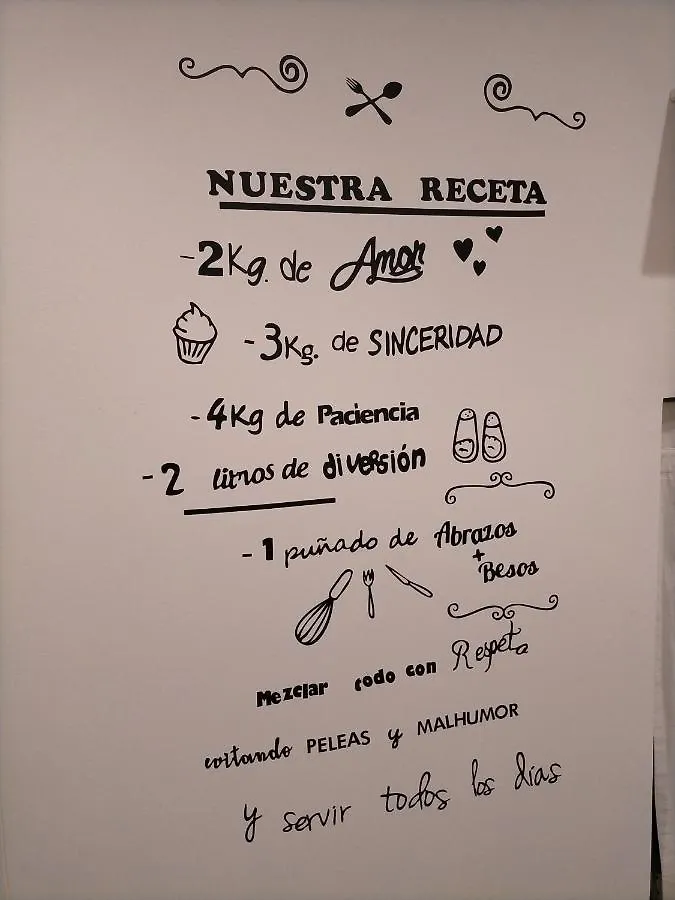 NUESTRA RECETA
-2Kg. de Amor
-3Kg. de SINCERIDAD
-4Kg de Paciencia
-2 litros de diversión
-1 puñado de Abrazos
+
Besos
Mezclar todo con Respeta
evitando PELEAS y MALHUMOR
y servir todos los días